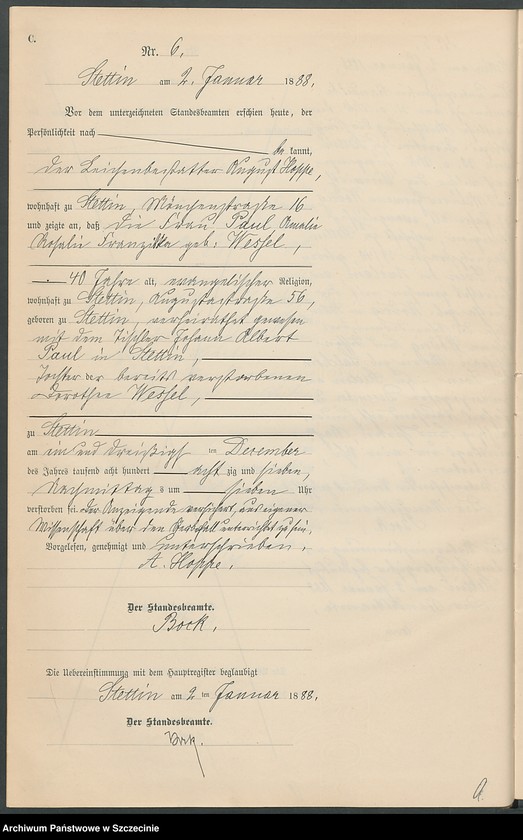 C.
Nr. 6.
Stettin am 2. Januar 1888.
Vor dem unterzeichneten Standesbeamten erschien heute, der
Persönlichkeit nach
be kannt,
der Leichenbestatter August Hoppe,
wohnhaft zu Stettin, Mönchenstraße 16
und zeigte an, daß die Frau Paul, Amalie
Rosalie Franziska geb: Wessel,
40 Jahre alt, evangelischer Religion,
wohnhaft zu Stettin, Augustastraße 56,
geboren zu Stettin, verheirathet gewesen
mit dem Tischler Johann Albert
Paul in Stettin,
Tochter der bereits verstorbenen
Dorothee Wessel,
zu Stettin
am ein und dreißigsten Dezember
des Jahres tausend acht hundert acht zig und sieben,
Nachmittag s um sieben Uhr
verstorben sei. Der Anzeigende versichert, aus eigener
Wissenschaft über den Sterbefall unterrichtet zu sein.
Vorgelesen, genehmigt und unterschrieben.
A. Hoppe.
Der Standesbeamte.
Bock.
Die Uebereinstimmung mit dem Hauptregister beglaubigt
Stettin am 2 ten Januar 1888.
Der Standesbeamte.
Bock.
Archiwum Państwowe w Szczecinie